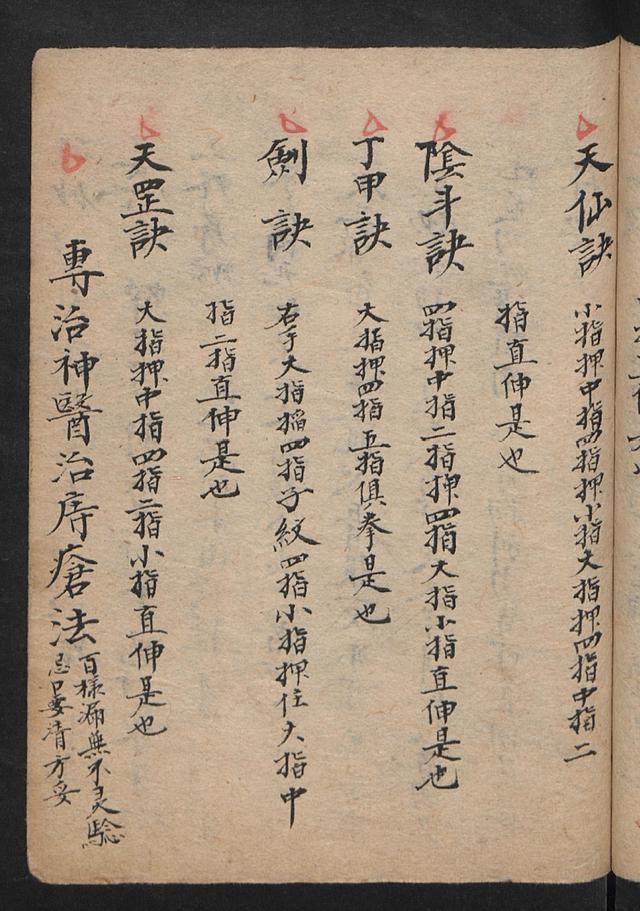 天仙訣 小指押中指四指押小指大指押四指中指二
指直伸是也
陰斗訣 四指押中指二指押四指大指小指直伸是也
丁甲訣 大指押四指五指俱拳是也
劍訣 右手大指掐四指子紋四指小指押住大指中
指二指直伸是也
天罡訣 大指押中指四指二指小指直伸是也
專治神醫治痔瘡法 百樣漏無不灵驗
忌口要清方妥